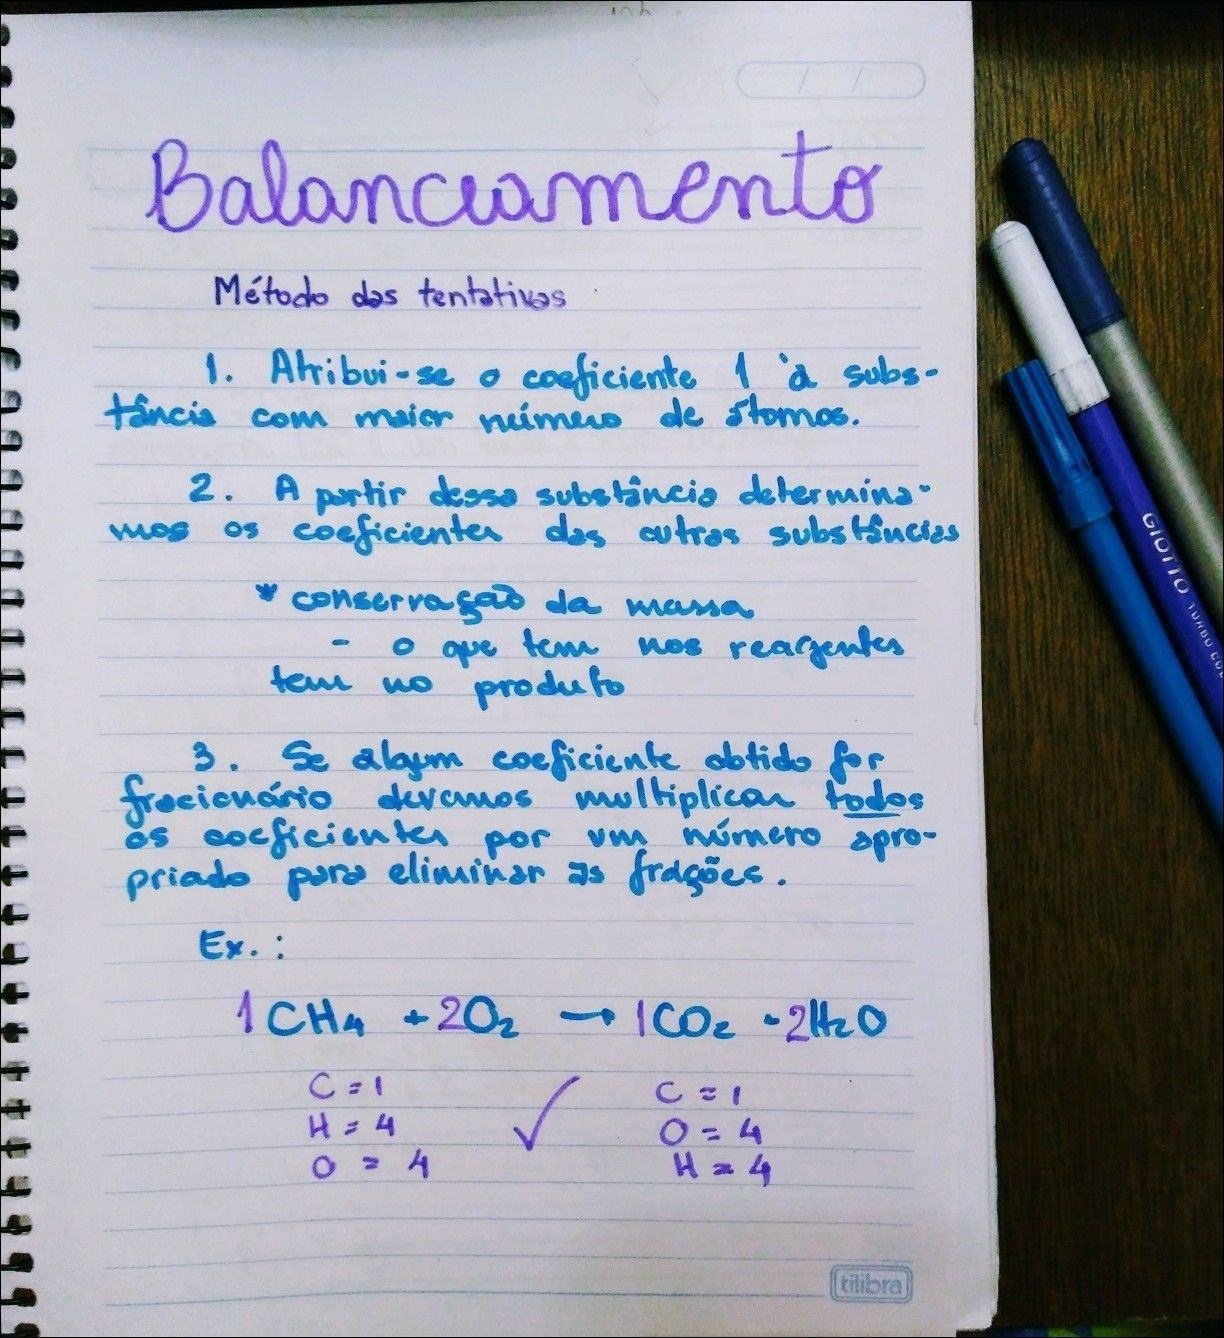 Balanceamento
Método das tentativas
1. Atribui-se o coeficiente 1 à subs-
tância com maior número de átomos.
2. A partir dessa substância determina-
mos os coeficientes das outras substâncias
* conservação da massa
- o que tem nos reagentes
tem no produto
3. Se algum coeficiente obtido for
fracionário devemos multiplicar todos
os coeficientes por um número apro-
priado para eliminar as frações.
Ex.:
1 CH₄ + 2O₂ → 1CO₂ + 2H₂O
C = 1 C = 1
H = 4 ✓ O = 4
O = 4 H = 4
tilibra
GIOTTO TURBO COL